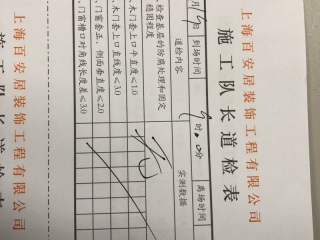 上海百安居装饰工程有限公司
施工队长道检表
到场时间
时
分
离场时间
道检内容
实测数据
检查基层的防腐处理和固定
稳固程度
木门套上口平直度≤1.0
木门套上口直线度≤3.0
门窗套正、侧面垂直度≤2.0
门窗槽口对角线长度差≤3.0
上海百安居装饰工程有限公司